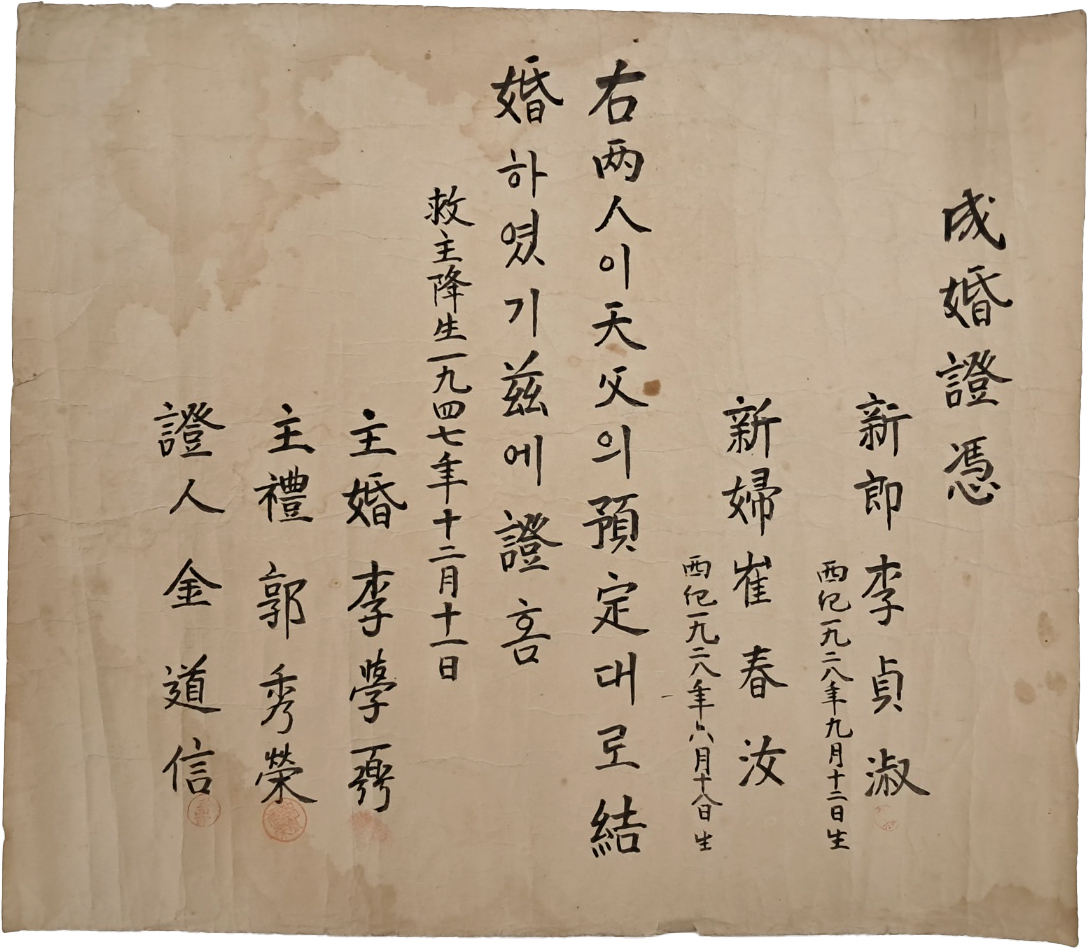 成婚證憑
新郎李貞淑
西紀一九二八年九月十二日生
新婦崔春汝
西紀一九二八年六月十八日生
右两人이天父의預定대로結
婚하였기玆에證홈
救主降生一九四七年十二月十一日
主婚李學
主禮郭秀榮
證人金道信